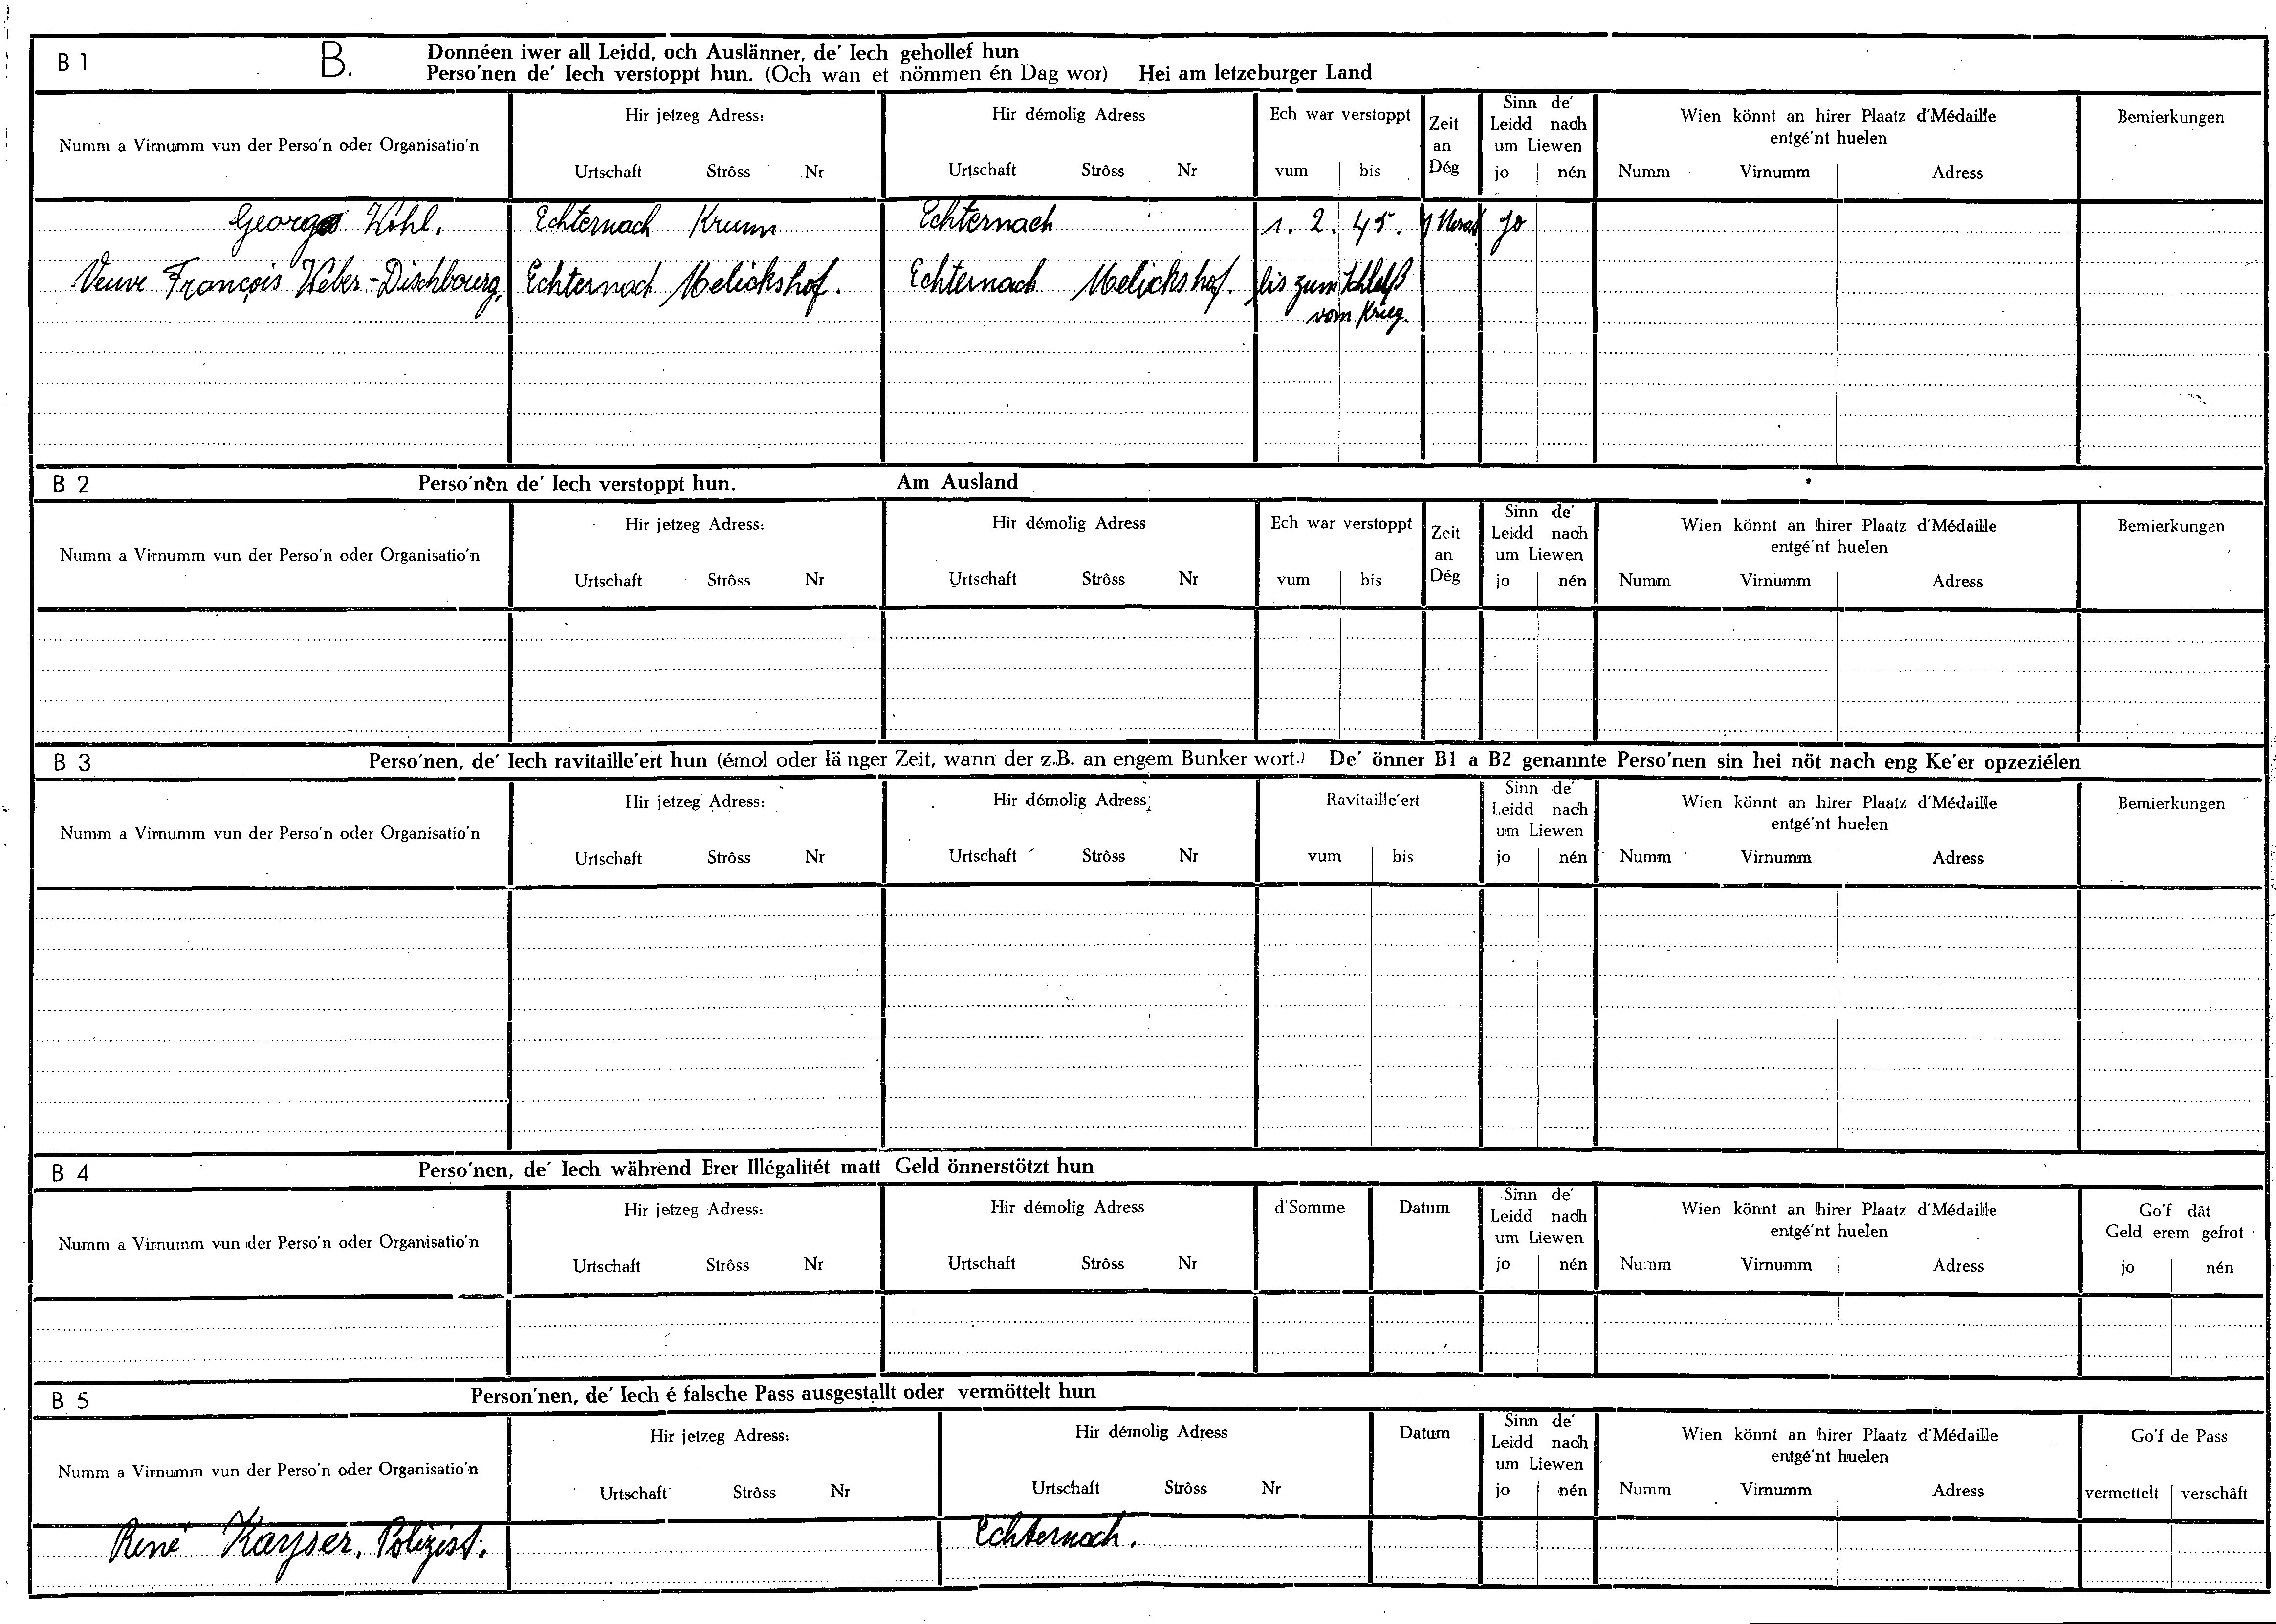 B 1 B. Donnéen iwer all Leidd, och Auslänner, de' Iech gehollef hun
Perso'nen de' Iech verstoppt hun. (Och wan et nömmen én Dag wor) Hei am letzeburger Land
Numm a Virnumm vun der Perso'n oder Organisatio'n
Hir jetzeg Adress:
Urtschaft Strôss Nr
Hir démolig Adress
Urtschaft Strôss Nr
Ech war verstoppt
vum bis
Zeit
an
Dég
Sinn de'
Leidd nach
um Liewen
jo nén
Wien könnt an hirer Plaatz d'Médaille
entgé'nt huelen
Numm Virnumm Adress
Bemierkungen
George Kohl. Echternach Krunn Echternach 1. 2. 45. jo
Veuve François Weber-Dischbourg, Echternach Melickshof. Echternach Melickshof. bis zum Schluß
vom Krieg.
B 2 Perso'nen de' Iech verstoppt hun. Am Ausland
Numm a Virnumm vun der Perso'n oder Organisatio'n
Hir jetzeg Adress:
Urtschaft Strôss Nr
Hir démolig Adress
Urtschaft Strôss Nr
Ech war verstoppt
vum bis
Zeit
an
Dég
Sinn de'
Leidd nach
um Liewen
jo nén
Wien könnt an hirer Plaatz d'Médaille
entgé'nt huelen
Numm Virnumm Adress
Bemierkungen
B 3 Perso'nen, de' Iech ravitaille'ert hun (émol oder länger Zeit, wann der z.B. an engem Bunker wort.) De' önner B1 a B2 genannte Perso'nen sin hei nöt nach eng Ke'er opzeziélen
Numm a Virnumm vun der Perso'n oder Organisatio'n
Hir jetzeg Adress:
Urtschaft Strôss Nr
Hir démolig Adress
Urtschaft Strôss Nr
Ravitaille'ert
vum bis
Sinn de'
Leidd nach
um Liewen
jo nén
Wien könnt an hirer Plaatz d'Médaille
entgé'nt huelen
Numm Virnumm Adress
Bemierkungen
B 4 Perso'nen, de' Iech während Erer Illégalitét matt Geld önnerstötzt hun
Numm a Virnumm vun der Perso'n oder Organisatio'n
Hir jetzeg Adress:
Urtschaft Strôss Nr
Hir démolig Adress
Urtschaft Strôss Nr
d'Somme
Datum
Sinn de'
Leidd nach
um Liewen
jo nén
Wien könnt an hirer Plaatz d'Médaille
entgé'nt huelen
Numm Virnumm Adress
Go'f dât
Geld erem gefrot
jo nén
B 5 Person'nen, de' Iech é falsche Pass ausgestallt oder vermöttelt hun
Numm a Virnumm vun der Perso'n oder Organisatio'n
Hir jetzeg Adress:
Urtschaft Strôss Nr
Hir démolig Adress
Urtschaft Strôss Nr
Datum
Sinn de'
Leidd nach
um Liewen
jo nén
Wien könnt an hirer Plaatz d'Médaille
entgé'nt huelen
Numm Virnumm Adress
Go'f de Pass
vermettelt verschâft
René Kayser, Polizist. Echternach.